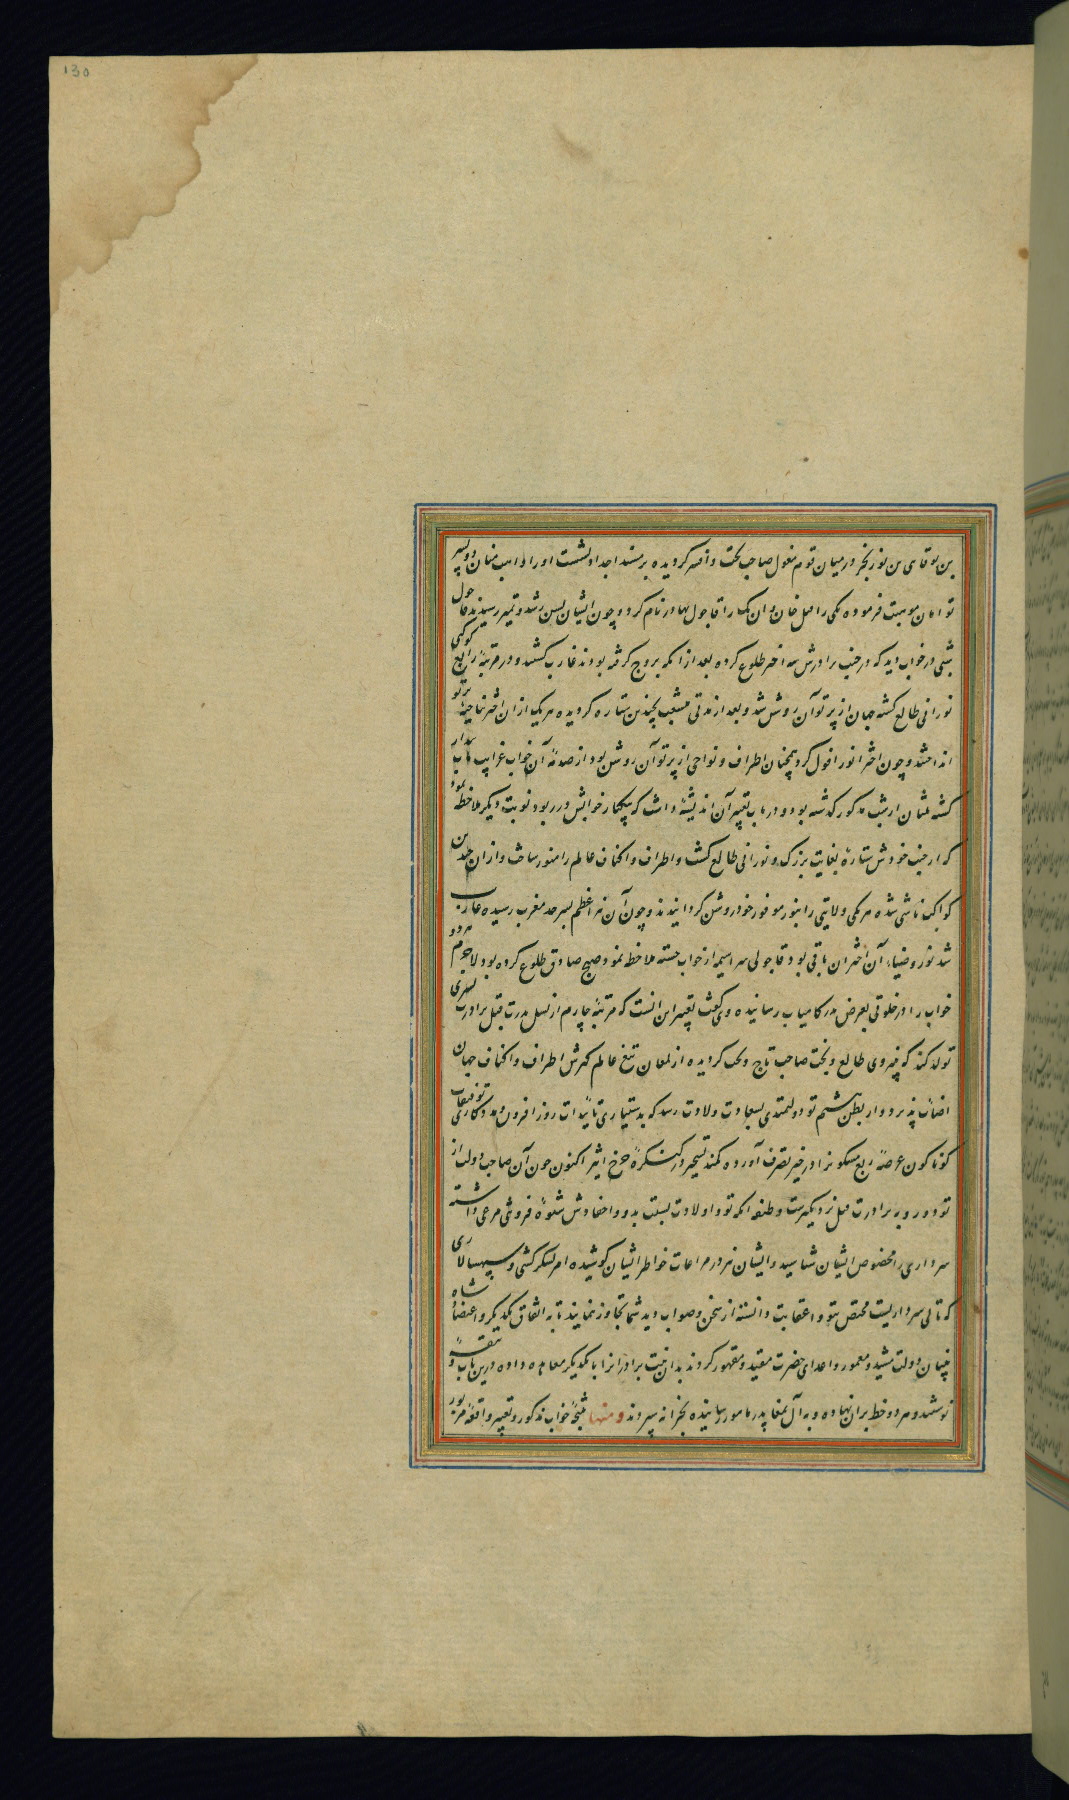 130
در میان قوم مغول صاحب تخت و افسر گردیده بر مسند اجداد نشست او را واهب منان دو پسر
توامان موهبت فرموده یکی را قبل خان و آن یک را قاجولی بهادر نام کرد و چون ایشان بسن رشد و تمیز رسیدند قاجولی
شبی در خواب دید که از جیب برادرش سه اختر طلوع کرده بعد از آنکه بروج کرفته بودند غارب کشتند و در مرتبهٔ رابع کوکبی
نورانی طالع کشته جهان از پرتو آن روشن شد و بعد از مدتی منشعب بچندین ستاره کردیده هر یک از آن اختر بناحیهٔ پرتو
انداختند و چون اختر انور افول کرد همچنان اطراف و نواحی از پرتو آن روشن بود از صدمهٔ آن خواب غرایب مآب بیدار
کشته از شب مذکور کذشته بود و در باب تعبیر آن اندیشهٔ داشت که خوابش در ربود نوبت دیکر ملاحظه نمود
که از جیب خودش ستارهٔ بغایت بزرک و نورانی طالع کشت و اطراف و اکناف عالم را منور ساخت و از آن چندین
کواکب ناشی شده هر یکی ولایتی را بنور موفور خود روشن کردانیدند و چون آن نیر اعظم بسرحد مغرب رسیده غارب
شد نور و ضیاء آن اختران باقی بود قاجولی سراسیمه از خواب جسته ملاحظه نمود صبح صادق طلوع کرده بود لاجرم هر دو
خواب را در خلوتی بعرض پدر کامیاب رسانیده وی کفت تعبیر این آنست که مرتبهٔ چهارم از نسل برادرت قبل پسری
تولد کند که به فیروزی طالع و بخت صاحب تاج و تخت کردیده از لمعان تیغ عالم کیرش اطراف و اکناف جهان
اضاءت پذیرد و از بطن هشتم تو دولتمندی بسعادت ولادت رسد که بدستیاری تاییدات روز افزون و مددکاری توفیقات
کوناکون عرصهٔ ربع مسکون را در حیز تصرف آورده کمند تسخیر در کنکرهٔ چرخ اثیر اکنون چون آن صاحب دولت از
تو دور و به برادرت قبل نزدیکترست وظیفه آنکه تو و اولادت نسبت بدو و احفادش شیوهٔ فروتنی مرعی داشته
سرداری را مخصوص ایشان شناسید و ایشان نیز در مراعات خواطر ایشان کوشیده امر لشکرکشی و سپهسالاری
که تالی سرداریست مختص بتو و اعقابت دانسته از سخن و صواب دید شما تجاوز ننمایند تا به اتفاق یکدیکر و اعتضاد شاه
بنیان دولت مشید و معمور و اعدای حضرت مقید و مقهور کردند بدان نیت برادران را با یکدیکر معاهده داده درین باب وثیقهٔ
نوشتند و هر دو خط بران نهاده و به آل تمغا پدر نامور رسانیده بخزانه سپردند و منها نتیجهٔ خواب مذکور و تعبیر واقعهٔ مزبور